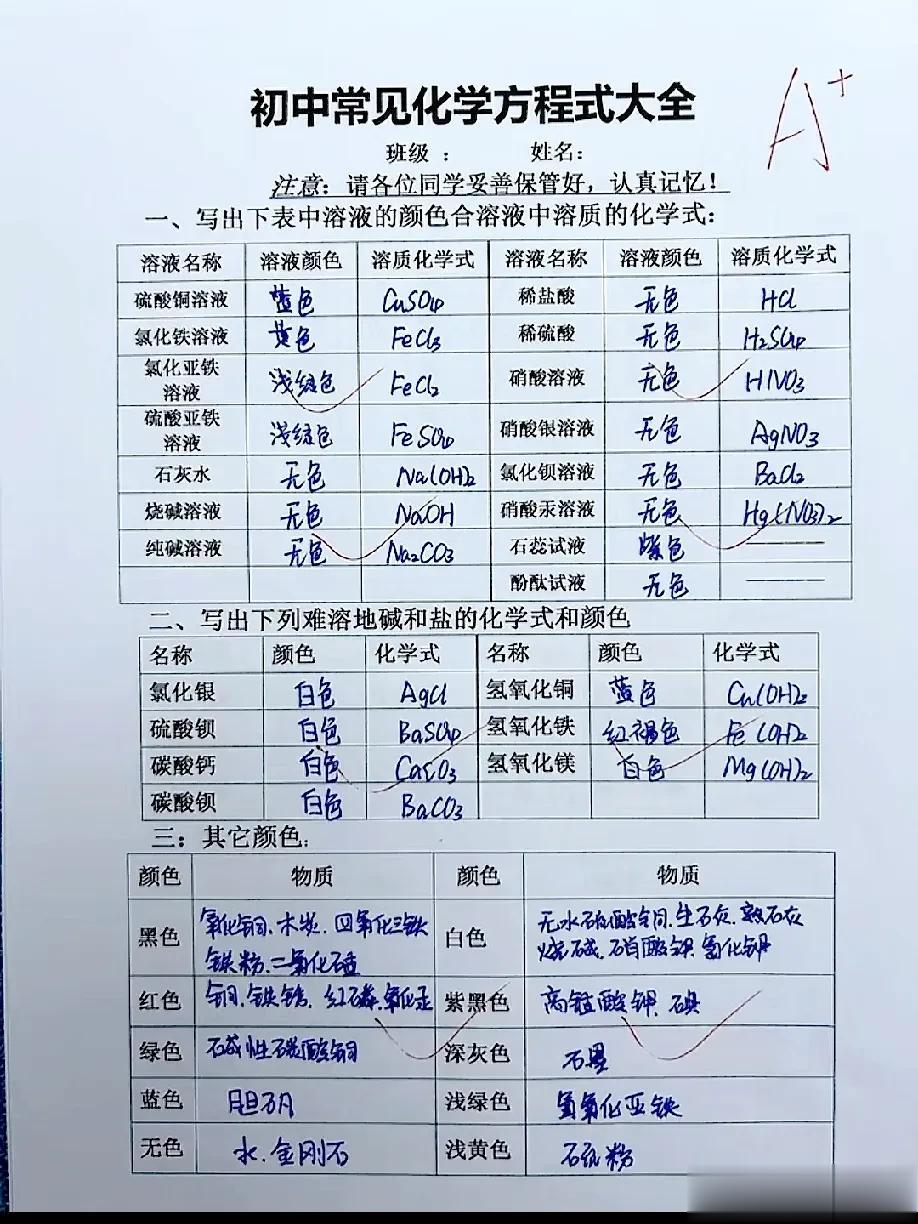 A+
初中常见化学方程式大全
班级 ： 姓名：
注意：请各位同学妥善保管好，认真记忆！
一、写出下表中溶液的颜色合溶液中溶质的化学式：
溶液名称 溶液颜色 溶质化学式 溶液名称 溶液颜色 溶质化学式
硫酸铜溶液 蓝色 CuSO4 稀盐酸 无色 HCl
氯化铁溶液 黄色 FeCl3 稀硫酸 无色 H2SO4
氯化亚铁溶液 浅绿色 FeCl2 硝酸溶液 无色 HNO3
硫酸亚铁溶液 浅绿色 FeSO4 硝酸银溶液 无色 AgNO3
石灰水 无色 Na(OH)2 氯化钡溶液 无色 BaCl2
烧碱溶液 无色 NaOH 硝酸汞溶液 无色 Hg(NO3)2
纯碱溶液 无色 Na2CO3 石蕊试液 紫色
酚酞试液 无色
二、写出下列难溶地碱和盐的化学式和颜色
名称 颜色 化学式 名称 颜色 化学式
氯化银 白色 AgCl 氢氧化铜 蓝色 Cu(OH)2
硫酸钡 白色 BaSO4 氢氧化铁 红褐色 Fe(OH)2
碳酸钙 白色 CaCO3 氢氧化镁 白色 Mg(OH)2
碳酸钡 白色 BaCO3
三：其它颜色：
颜色 物质 颜色 物质
黑色 氧化铜、木炭、四氧化三铁 铁粉、二氧化锰 白色 无水硫酸铜、生石灰、熟石灰 烧碱、硝酸钾、氯化钾
红色 铜、铁锈、红磷、氧化汞 紫黑色 高锰酸钾、碘
绿色 碱性碳酸铜 深灰色 石墨
蓝色 胆矾 浅绿色 氢氧化亚铁
无色 水、金刚石 浅黄色 硫粉